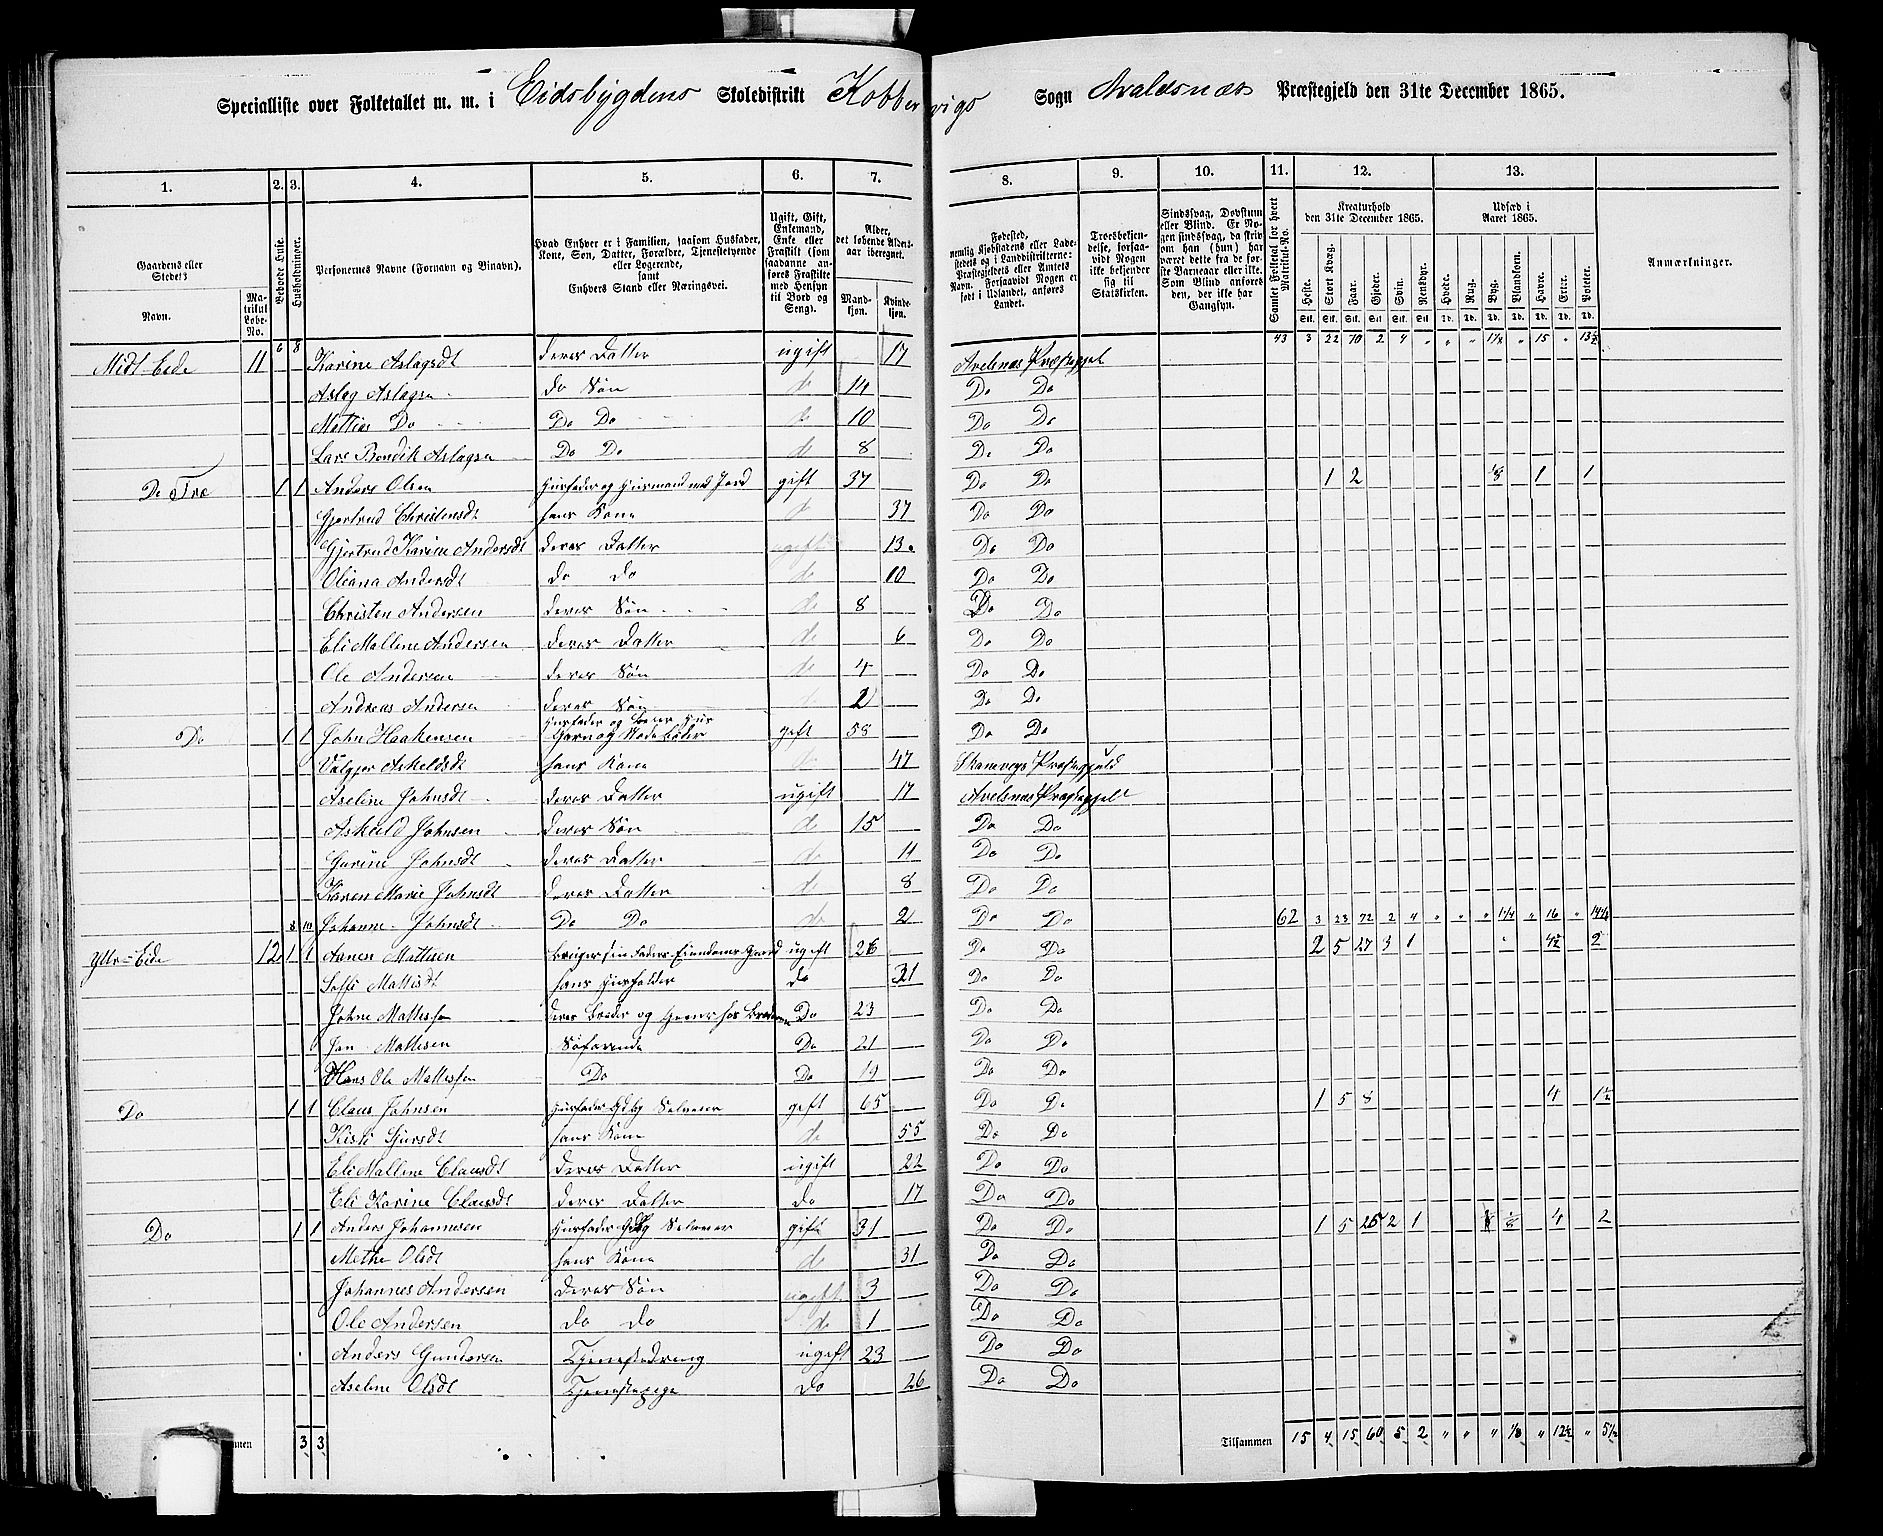 Specialliste over Folketallet m. m. i Eidsbygdens Skoledistrikt Kobbervigs Sogn Avaldsnæs Præstegjeld den 31te December 1865.
1. 2. 3. 4. 5. 6. 7. 8. 9. 10. 11. 12. 13.
Gaardens eller Stedets Navn. Matrikul Løbe-No. Beboede Huse. Husholdninger. Personernes Navne (Fornavn og Binavn). Hvad Enhver er i Familien, saasom Husfader, Kone, Søn, Datter, Forældre, Tjenestetyende eller Logerende, samt Enhvers Stand eller Næringsvei. Ugift, Gift, Enkemand, Enke eller Fraskilt (som saadanne anføres Fraskilte med Hensyn til Bord og Seng). Alder, det løbende Aldersaar iberegnet. Mandkjøn. Kvindekjøn. Fødested, nemlig Kjøbstadens eller Ladestedets og i Landdistrikterne: Præstegjeldets eller Amtets Navn. Forsaavidt Nogen er født i Udlandet, anføres Landet. Troesbekjendelse, forsaavidt Nogen ikke bekjender sig til Statskirken. Sindssvag, Døvstum eller Blind. Er Nogen sindssvag, da skriv om han (hun) har været dette fra de første Barneaar eller ikke. Som Blind anføres den, der ikke har Gangsyn. Samlet Folketal for hvert Matrikul-No. Kreaturhold den 31te December 1865. Heste. Stort Kvæg. Faar. Gjeder. Svin. Rensdyr. Udsæd i Aaret 1865. Hvede. Rug. Byg. Blandkorn. Havre. Erter. Poteter. Anmærkninger.
6 8 43 3 22 70 2 4 " " " 1 1/8 " 15 " 13 1/2
Midt Eide 11 Karine Aslagsdt deres Datter ugift 17 Avelsnæs Præstegjel
Aslag Aslagsen do Søn do 14 Do Do
Mattias Do Do Do do 10 Do Do
Lars Bendik Aslagsen Do Do do 8 Do Do
Do Træ 1 1 Anders Olsen Husfader og Husmand med Jord gift 37 Do Do 1 2 1/8 1 1
Gjertrud Christensdt hans Kone d 37 Do Do
Gjertrud Karine Andersdt deres Datter ugift 13 Do Do
Oliana Andersdt do do do 10 Do Do
Christen Andersen deres Søn do 8 Do Do
Eli Mallene Andersen deres Datter do 6 Do Do
Ole Andersen deres Søn do 4 Do Do
Andreas Andersen deres Søn 2 Do Do
Do 1 1 John Haakensen gift 58 Do Do
Valgjer Askeldsdt hans Kone do 47 Skonevigs Præstegjeld
Aseline Johnsdt deres Datter ugift 17 Avelsnæs Præstegjel
Askeld Johnsen deres Søn do 15 Do Do
Gurine Johnsdt deres Datter do 11 Do Do
Karen Marie Johnsdt deres Datter do 8 Do Do
8 10 Johanne Johnsdt Do Do do 2 Do Do 62 3 23 72 2 4 " " " 1 1/4 " 16 " 14 1/2
Ytre=Eide 12 1 1 Aanen Mattesen Bruger sin Faders Eiendoms Gaard ugift 26 Do Do 2 5 27 3 1 4 1/2 2
Mattisdt do 31 Do Do
Johne Mattessen Do 23 Do Do
Jan Mattesen Søfarende Do 21 Do Do
Hans Ole Mattessen Do Do 19 Do Do
Do 1 1 Claus Johnsen Husfader Gdbg Selveier gift 65 Do Do 1 5 8 4 1 1/2
Kisti Sjursdt hans Kone do 55 Do Do
Eli Mallene Clausdt deres Datter ugift 22 Do Do
Eli Karine Clausdt deres Datter do 17 Do Do
Do 1 1 Anders Johannesen Husfader Gdbg Selveier gift 31 Do Do 1 5 25 2 1 1/8 4 2
Methe Olsdt hans Kone do 31 Do Do
Johannes Andersen deres Søn ugift 3 Do Do
Ole Andersen do do do 1 Do Do
Anders Gundersen Tjenestedreng ugift 23 Do Do
Aseline Olsdt Tjenestepige do 26 Do Do
mmen 3 3 Tilsammen 15 4 15 60 5 2 " " " 1/8 " 12 1/2 " 5 1/2